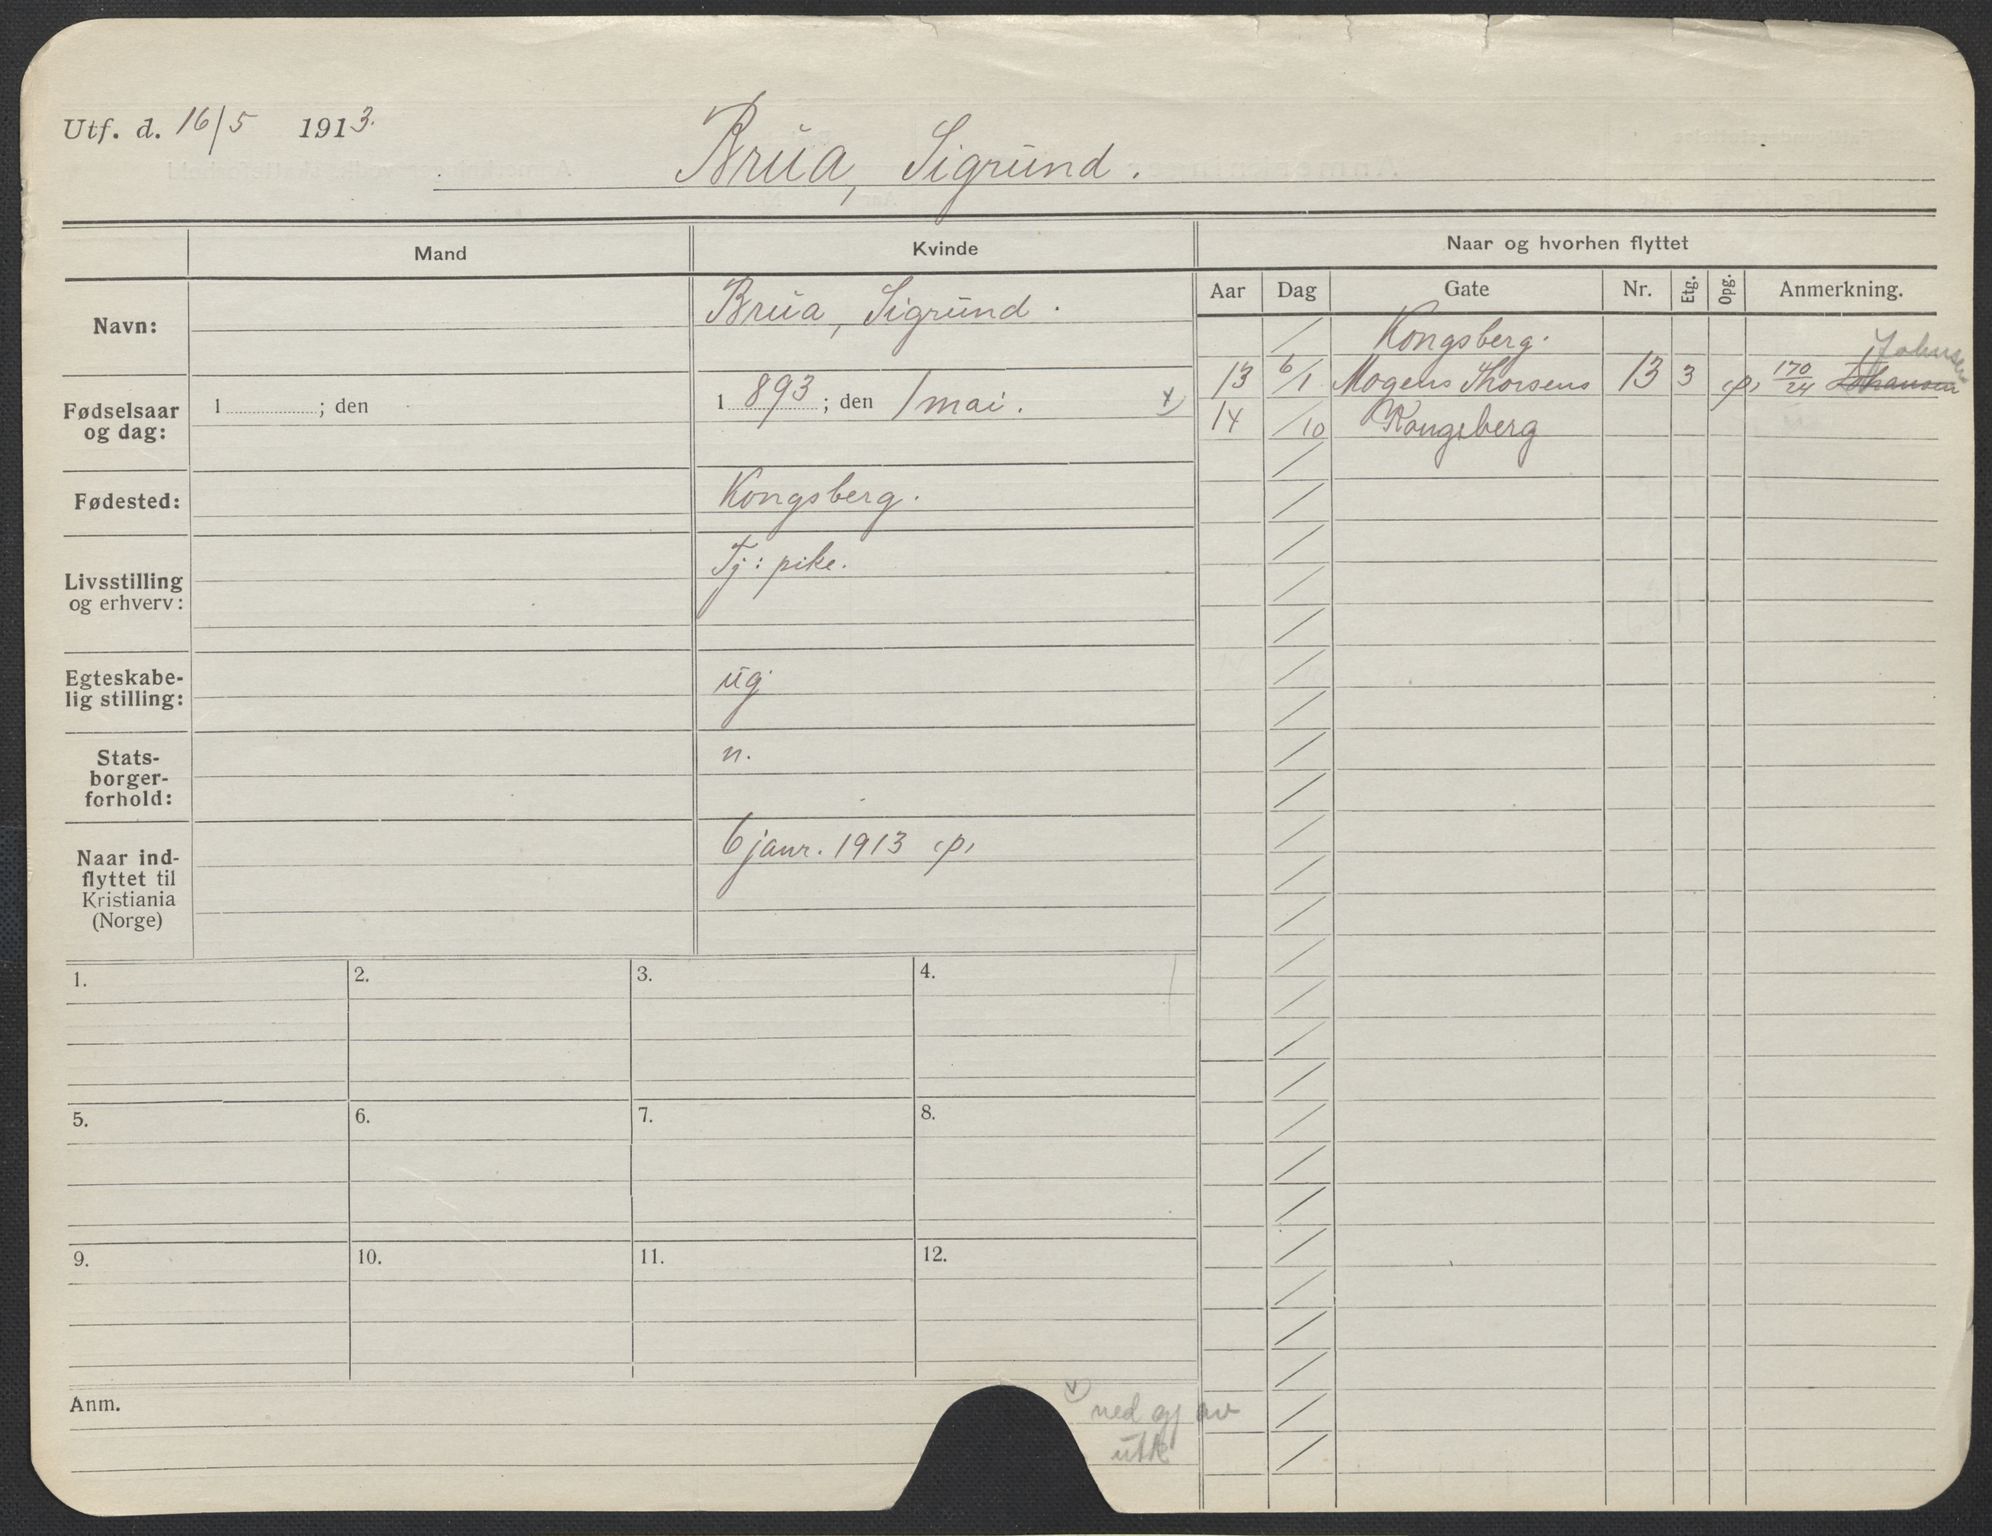 Utf. d. 16/5 1913.
Brua, Sigrund.
Mand
Kvinde
Naar og hvorhen flyttet
Aar Dag Gate Nr. Etg. Opg. Anmerkning.
Navn:
Brua, Sigrund.
/ Kongsberg.
Johnsen
13 6/1 Mogens Thorsens 13 3 (p) 170/24 Johansen
14 /10 Kongsberg
Fødselsaar
og dag:
1 ; den
1 893 ; den 1 mai. x)
Fødested:
Kongsberg.
Livsstilling
og erhverv:
Tj: pike.
Egteskabe-
lig stilling:
ug.
Stats-
borger-
forhold:
n.
Naar ind-
flyttet til
Kristiania
(Norge)
6 janr. 1913 (p)
1. 2. 3. 4.
5. 6. 7. 8.
9. 10. 11. 12.
Anm.
x) ned gj av
utk